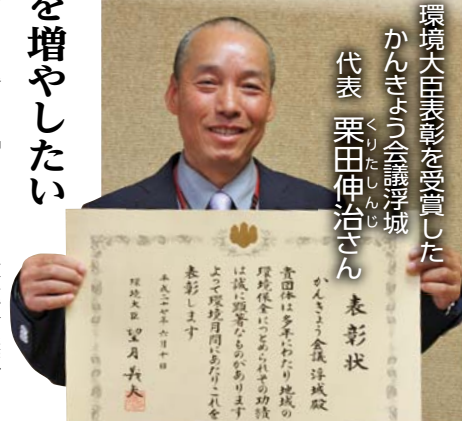 環境大臣表彰を受賞した
かんきょう会議浮城
代表 栗田伸治さん
くりたしんじ
を増やしたい
表彰状
かんきょう会議 浮城殿
貴団体は多年にわたり地域の
環境保全につとめられその功績
は誠に顕著なものがあります
よって環境月間にあたりこれを
表彰します
平成二十七年六月十日
環境大臣 望月義夫